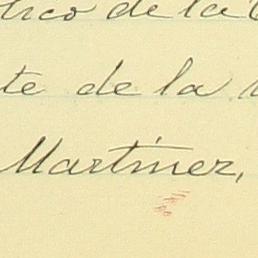 de la
te de la
Martinez,